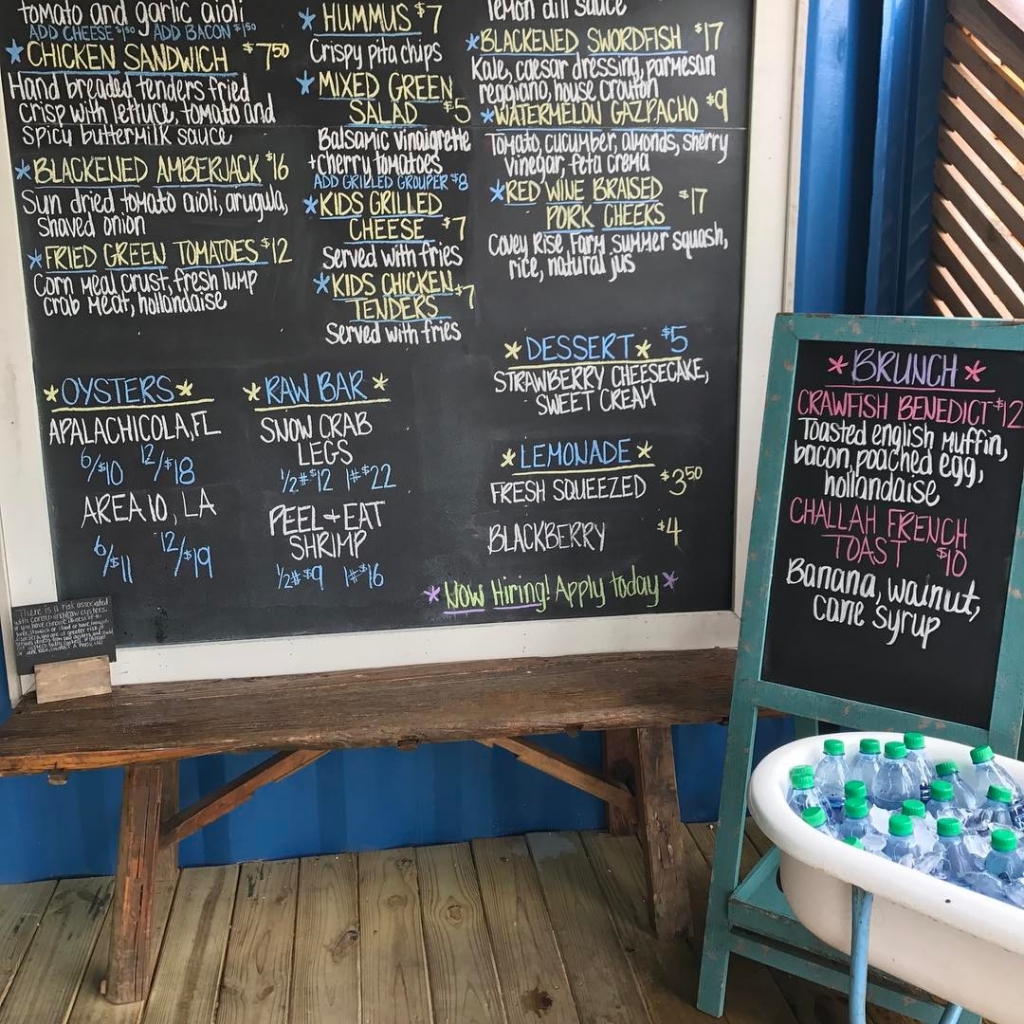 tomato and garlic aioli
ADD CHEESE $1.50 ADD BACON $1.50
CHICKEN SANDWICH $7.50
Hand breaded tenders fried
crisp with lettuce, tomato and
spicy buttermilk sauce
BLACKENED AMBERJACK $16
Sun dried tomato aioli, arugula,
shaved onion
FRIED GREEN TOMATOES $12
Corn meal crust, fresh lump
crab meat, hollandaise
HUMMUS $7
Crispy pita chips
MIXED GREEN
SALAD $5
Balsamic vinaigrette
+cherry tomatoes
ADD GRILLED GROUPER $8
KIDS GRILLED
CHEESE $7
Served with fries
KIDS CHICKEN
TENDERS $7
Served with fries
lemon dill sauce
BLACKENED SWORDFISH $17
Kale, caesar dressing, parmesan
reggiano, house crouton
WATERMELON GAZPACHO $9
Tomato, cucumber, almonds, sherry
vinegar, feta crema
RED WINE BRAISED
PORK CHEEKS $17
Covey Rise Farm summer squash,
rice, natural jus
OYSTERS
APALACHICOLA, FL
6/$10 12/$18
AREA 10, LA
6/$11 12/$19
RAW BAR
SNOW CRAB
LEGS
1/2# $12 1# $22
PEEL + EAT
SHRIMP
1/2# $9 1# $16
DESSERT $5
STRAWBERRY CHEESECAKE,
SWEET CREAM
LEMONADE
FRESH SQUEEZED $3.50
BLACKBERRY $4
Now Hiring! Apply today
There is a risk associated
BRUNCH
CRAWFISH BENEDICT $12
Toasted english muffin,
bacon, poached egg,
hollandaise
CHALLAH FRENCH
TOAST $10
Banana, walnut,
cane syrup